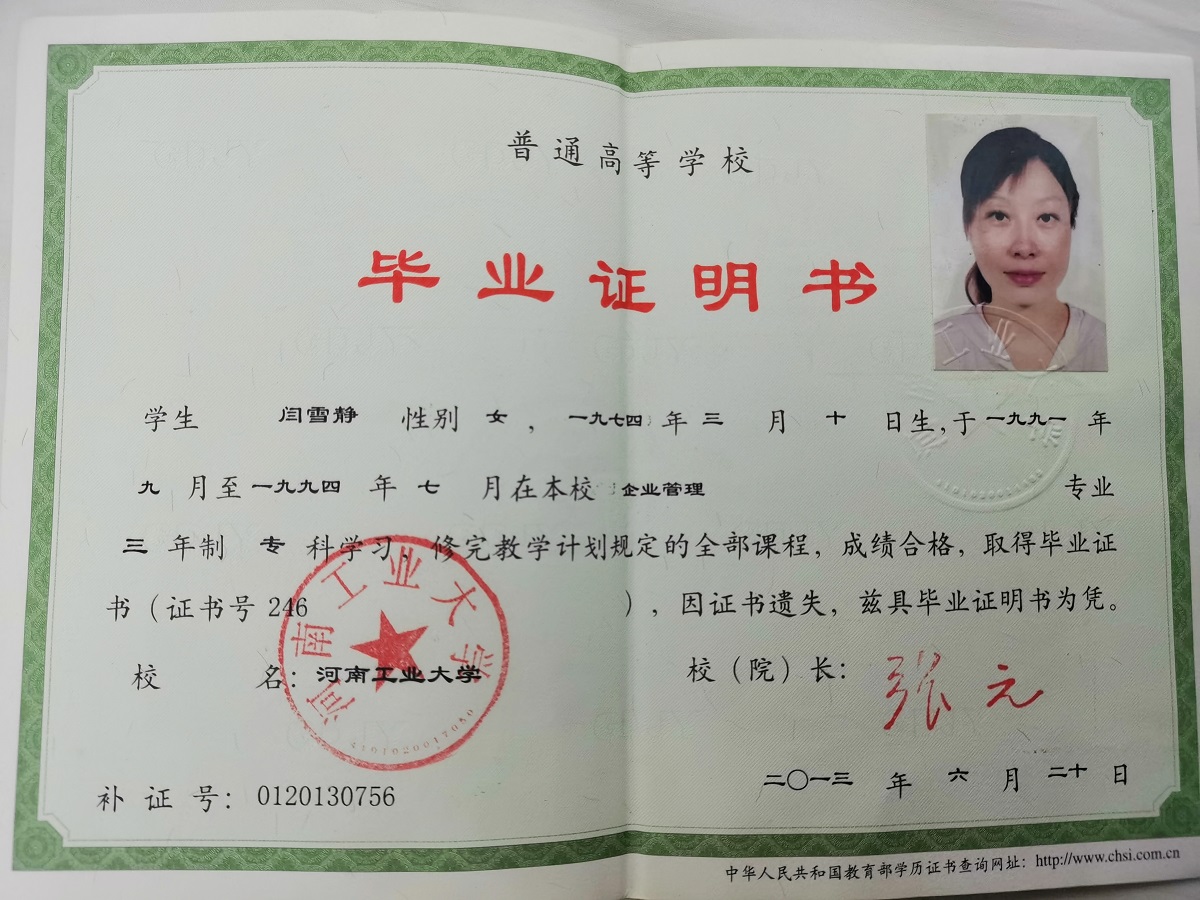 普通高等学校
毕业证明书
学生 闫雪静 性别 女，一九七四年三月十日生，于一九九一年
九月至一九九四年七月在本校 企业管理 专业
三年制 专科学习，修完教学计划规定的全部课程，成绩合格，取得毕业证
书（证书号 246 ），因证书遗失，兹具毕业证明书为凭。
校 名：河南工业大学
校（院）长：张元
河南工业大学
4101020017080
二〇一三年六月二十日
补证号：0120130756
中华人民共和国教育部学历证书查询网址：http://www.chsi.com.cn